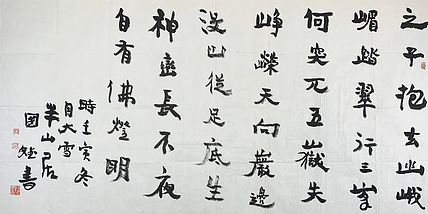 之子抱玄幽峨
嵋踏翠行三峯
何突兀五嶽失
崢嶸天向巖邊
没山從足底生
神巒長不夜
自有佛燈明
時壬寅冬
月大雪
半山居
國書